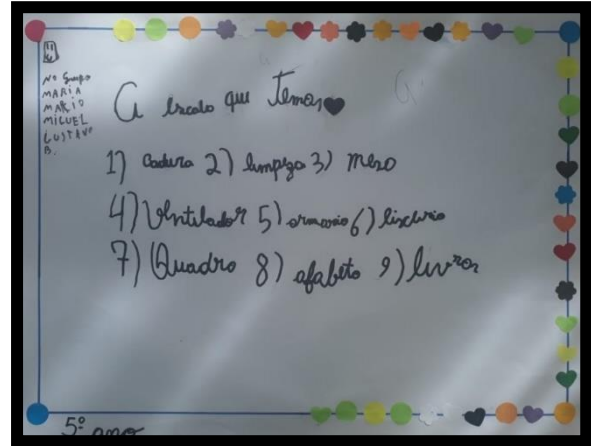 Nº Grupo
MARIA
MARIO
MIGUEL
GUSTAVO
B.
A Escola que Temos
1) Cadeira 2) limpeza 3) Mesa
4) Ventilador 5) armario 6) lixeira
7) Quadro 8) afabeto 9) livros
5º ano